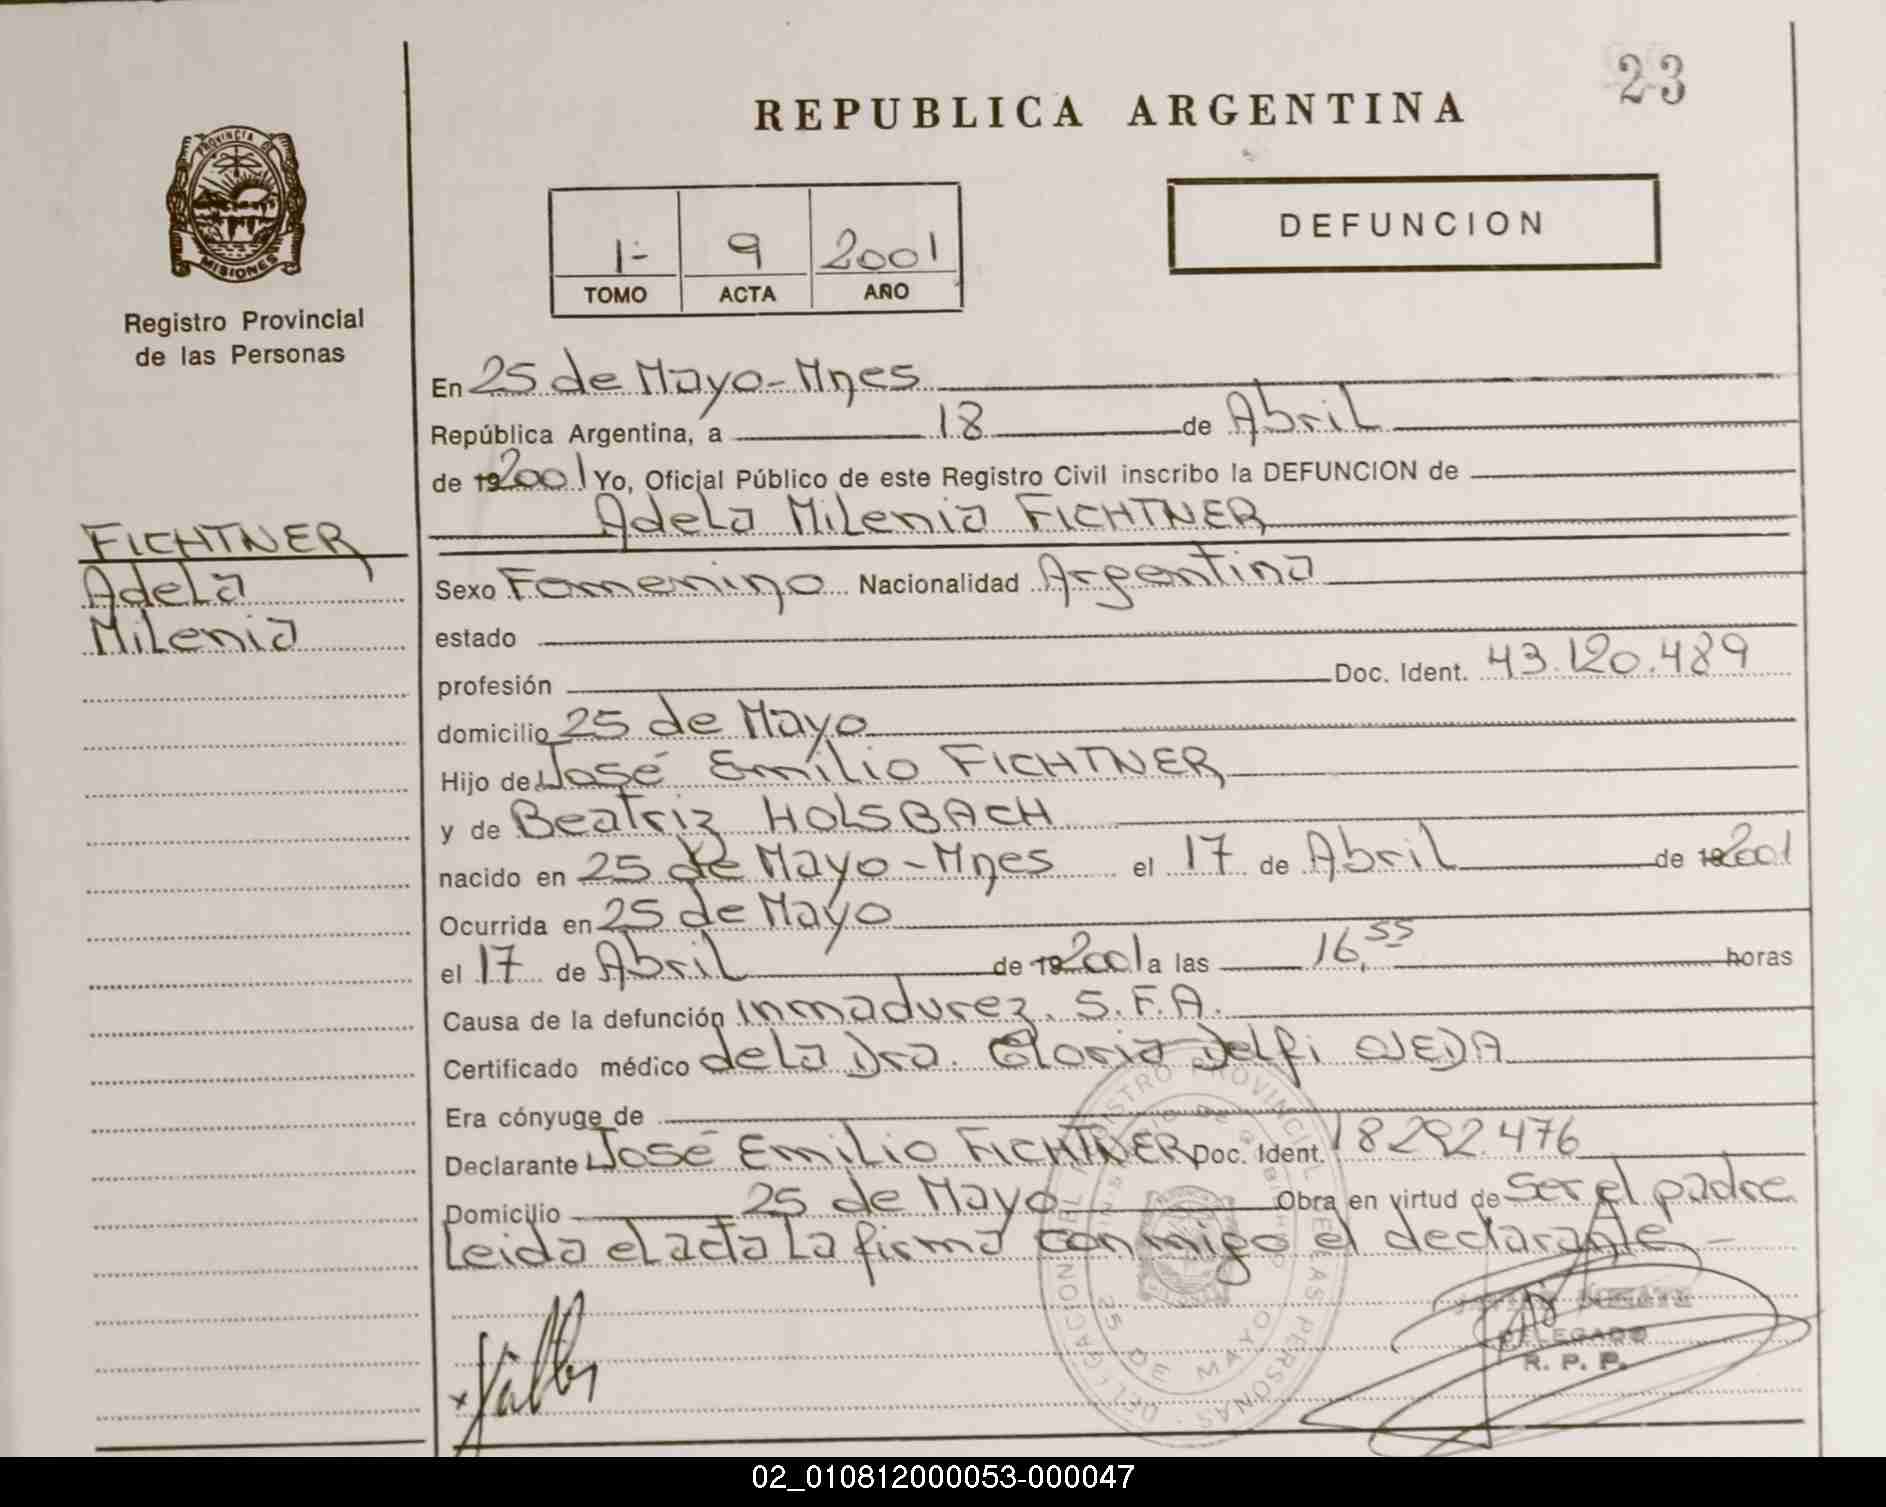 23
REPUBLICA ARGENTINA
PROVINCIA DE
MISIONES
Registro Provincial
de las Personas
DEFUNCION
1- 9 2001
TOMO ACTA AÑO
En 25 de Mayo-Mnes
República Argentina, a 18 de Abril
de 192001 Yo, Oficial Público de este Registro Civil inscribo la DEFUNCION de
Adela Milenia FICHTNER
FICHTNER
Adela
Milenia
Sexo Femenino Nacionalidad Argentina
estado
profesión Doc. Ident. 43.120.489
domicilio 25 de Mayo
Hijo de José Emilio FICHTNER
y de Beatriz HOLSBACH
nacido en 25 de Mayo-Mnes el 17 de Abril de 192001
Ocurrida en 25 de Mayo
el 17 de Abril de 192001 a las 16,55 horas
Causa de la defunción Inmadurez. S.F.A.
Certificado médico dela Dra. Gloria Delfi OJEDA
Era cónyuge de
Declarante José Emilio FICHTNER Doc. Ident. 18292.476
Domicilio 25 de Mayo Obra en virtud de Ser el padre
Leida el acta La firma conmigo el declarante-
25 DE MAYO
DELEGADO
R. P. P.
02_010812000053-000047